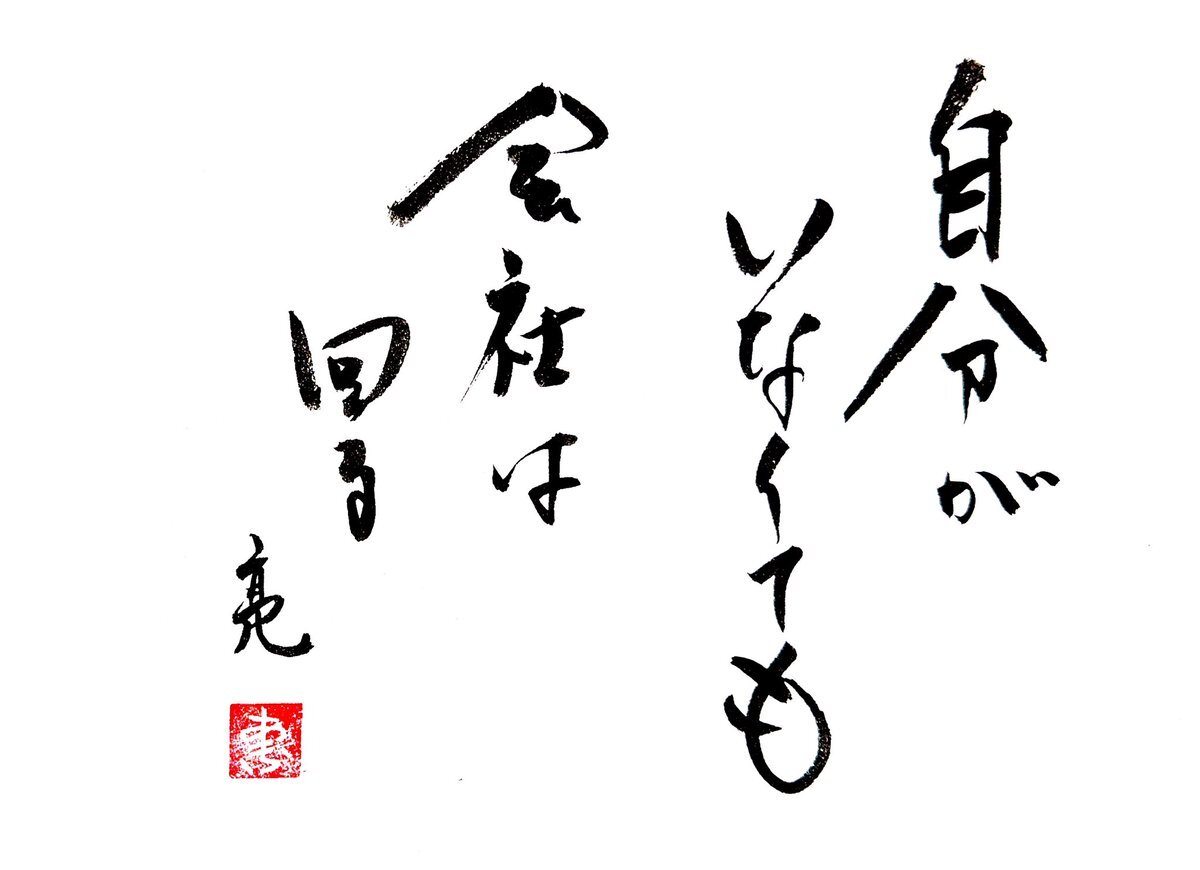 自分が
いなくても
会社は
回る
亮